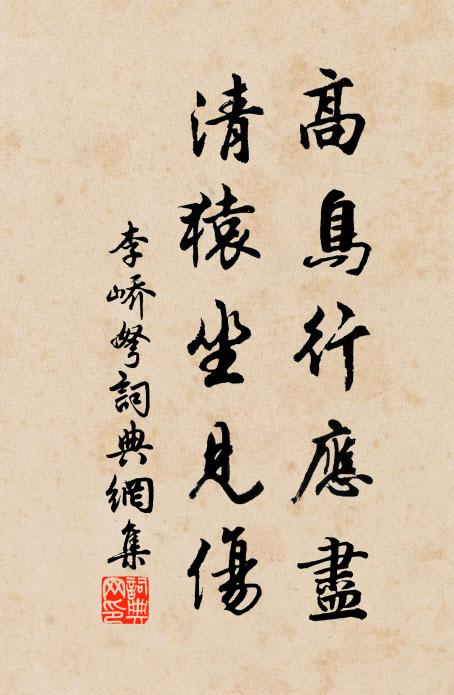 高鳥行應盡
清猿坐見傷
李嶠弩詞典網集
詞典
网印